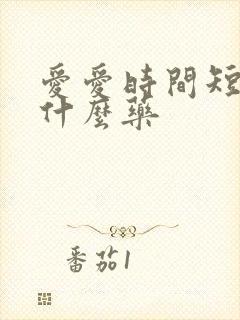 愛愛時間短
什麼藥
番茄1